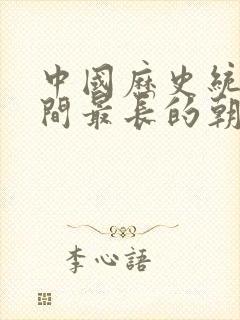 中國歷史統
間最長的朝
李心語